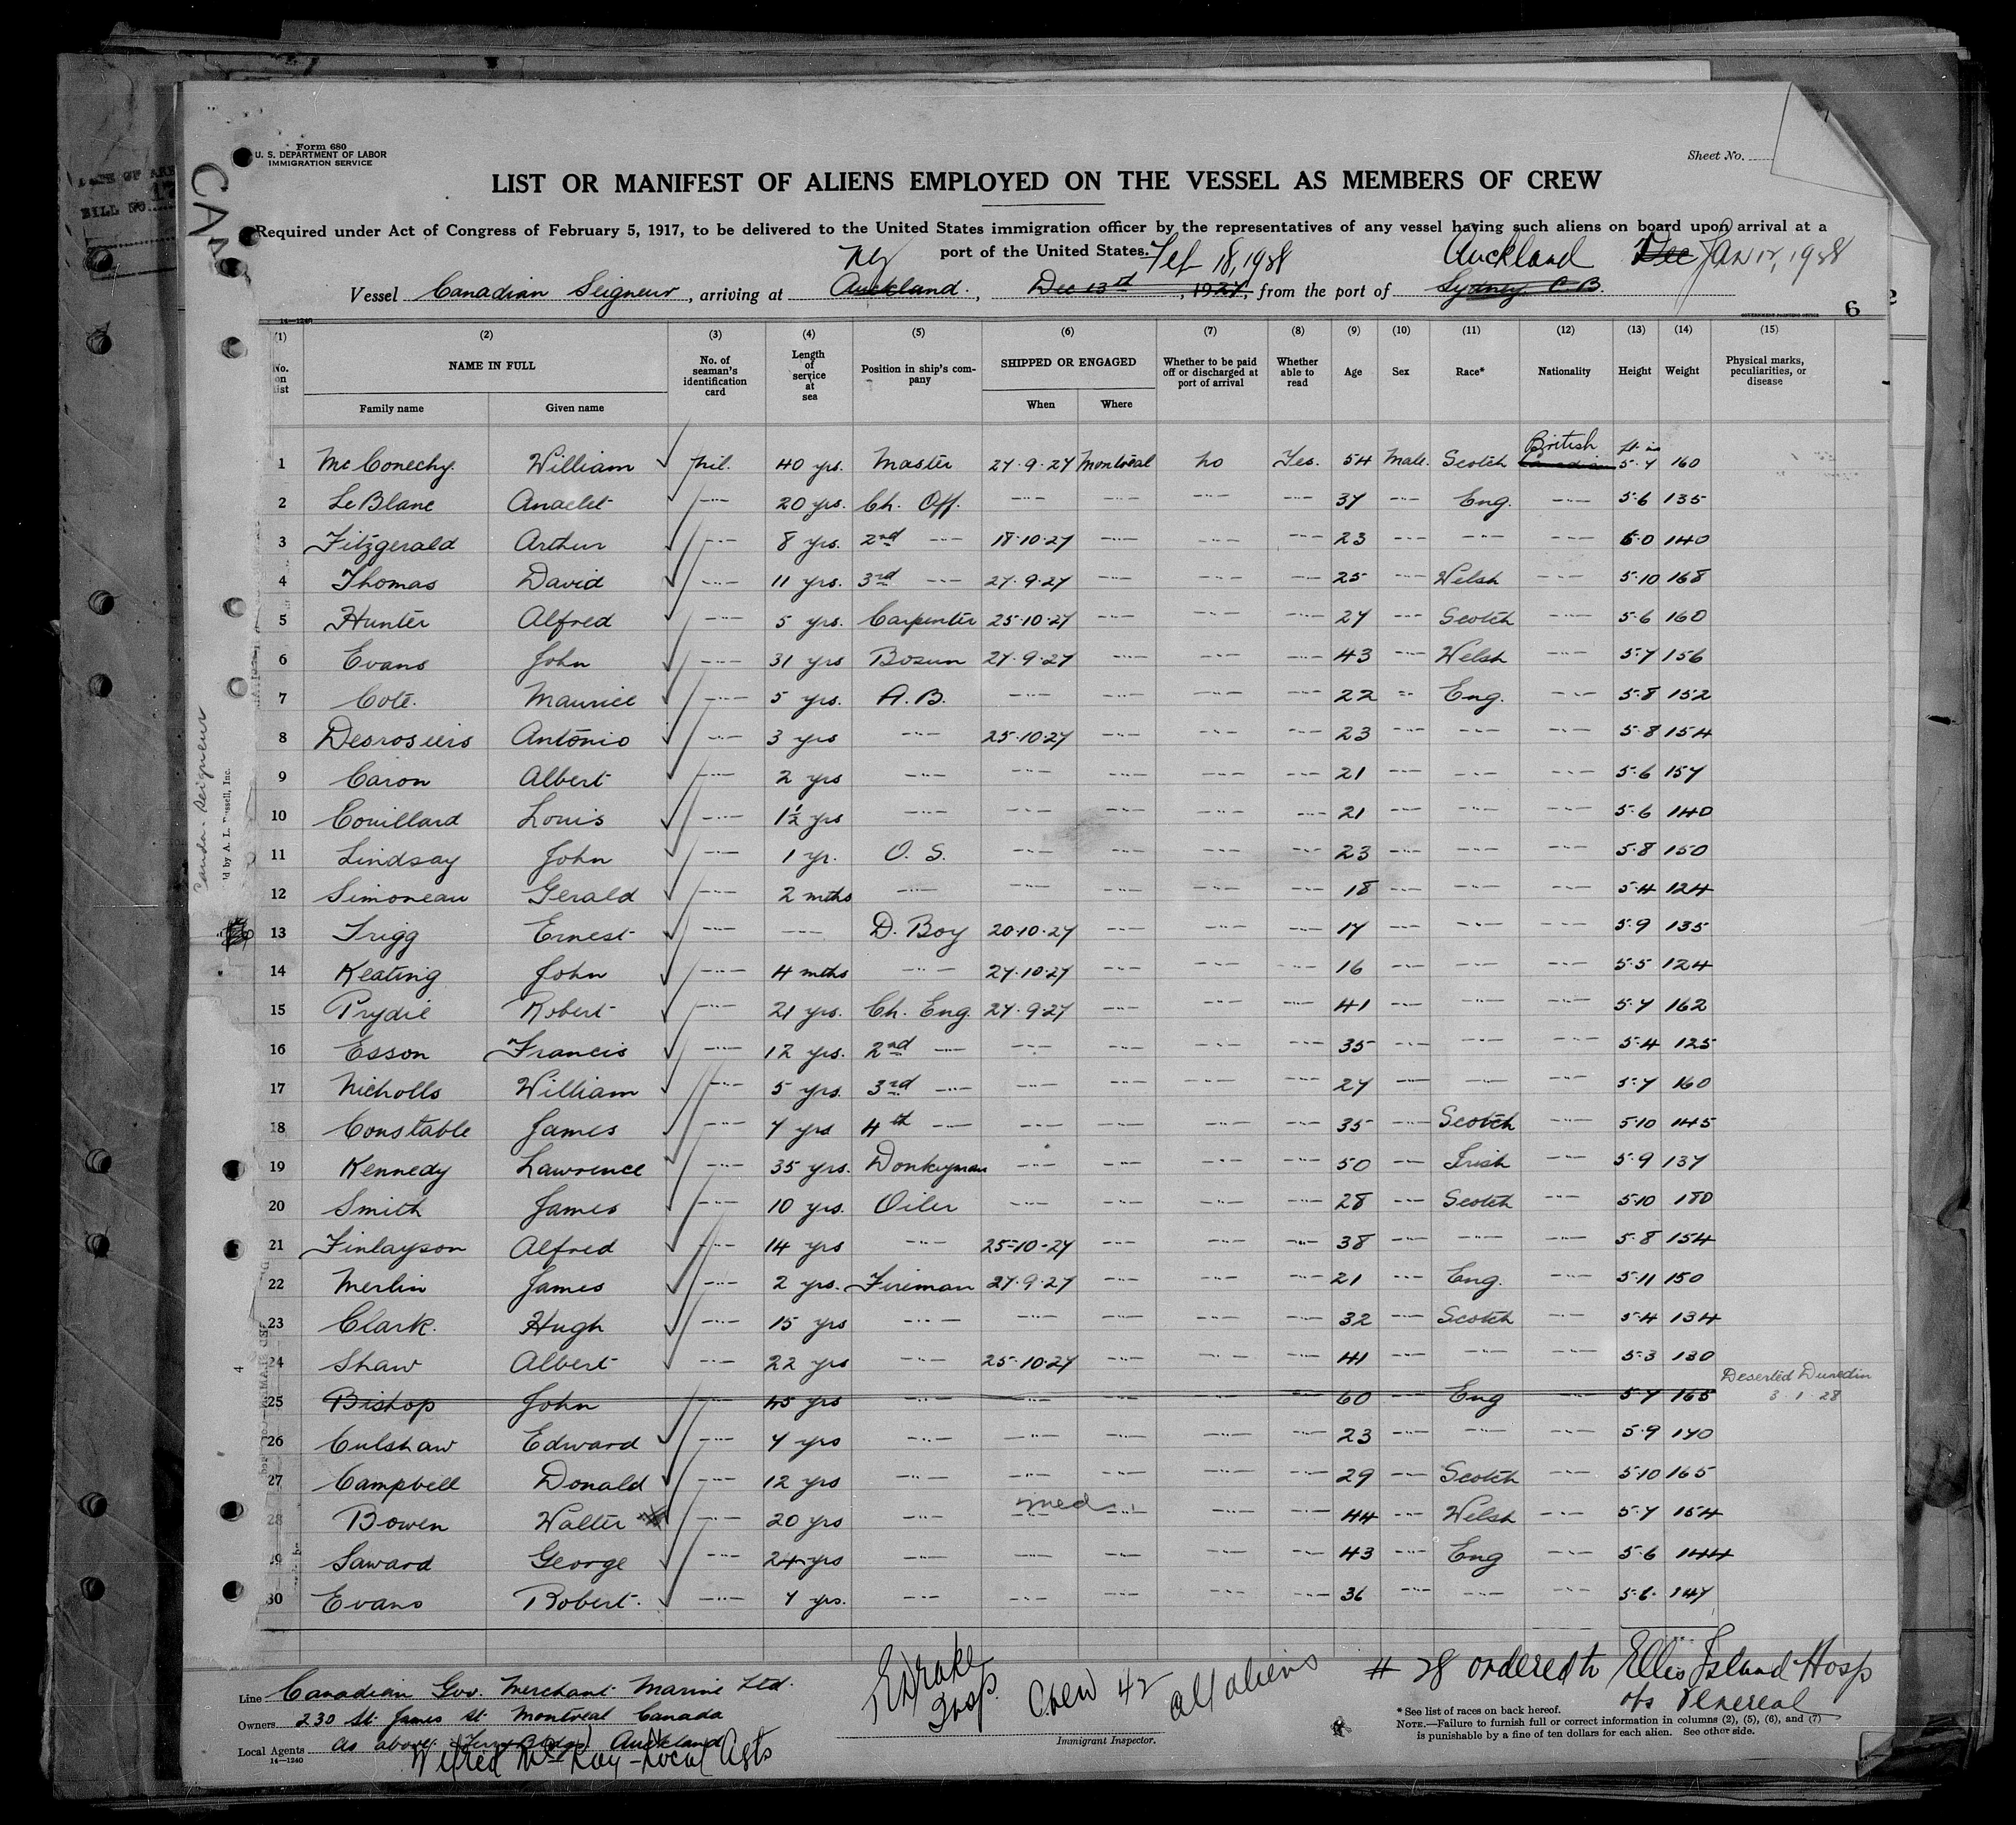 Form 680
U. S. DEPARTMENT OF LABOR
IMMIGRATION SERVICE
Sheet No.
LIST OR MANIFEST OF ALIENS EMPLOYED ON THE VESSEL AS MEMBERS OF CREW
Required under Act of Congress of February 5, 1917, to be delivered to the United States immigration officer by the representatives of any vessel having such aliens on board upon arrival at a
port of the United States.
NY Feb 18, 1928 Auckland Dec JAN 12, 1928
Vessel Canadian Seigneur, arriving at Auckland., Dec 13th, 1927, from the port of Sydney C.B.
6
(1) (2) (3) (4) (5) (6) (7) (8) (9) (10) (11) (12) (13) (14) (15)
No. on list NAME IN FULL No. of seaman's identification card Length of service at sea Position in ship's company SHIPPED OR ENGAGED Whether to be paid off or discharged at port of arrival Whether able to read Age Sex Race* Nationality Height Weight Physical marks, peculiarities, or disease
Family name Given name When Where
British Ft. in
1 McConechy. William nil. 40 yrs. Master 27.9.27 Montreal No Yes. 54 Male. Scotch Canadian 5.7 160
2 LeBlanc Anaclet 20 yrs. Ch. Off. 37 Eng. 5.6 135
3 Fitzgerald Arthur 8 yrs. 2nd 18.10.27 23 6.0 140
4 Thomas David 11 yrs. 3rd 27.9.27 25 Welsh 5.10 168
5 Hunter Alfred 5 yrs. Carpenter 25.10.27 27 Scotch 5.6 160
6 Evans John 31 yrs Bosun 27.9.27 43 Welsh 5.7 156
7 Coté. Maurice 5 yrs. A.B. 22 Eng. 5.8 152
8 Desrosiers Antonio 3 yrs 25.10.27 23 5.8 154
9 Caron Albert 2 yrs 21 5.6 157
10 Couillard Louis 1½ yrs 21 5.6 140
11 Lindsay John 1 yr. O.S. 23 5.8 150
12 Simoneau Gerald 2 mths 18 5.4 124
13 Trigg Ernest D. Boy 20.10.27 17 5.9 135
14 Keating John 4 mths 27.10.27 16 5.5 124
15 Prydie Robert 21 yrs. Ch. Eng. 27.9.27 41 5.7 162
16 Esson Francis 12 yrs. 2nd 35 5.4 125
17 Nicholls William 5 yrs. 3rd 27 5.7 160
18 Constable James 7 yrs 4th 35 Scotch 5.10 145
19 Kennedy Lawrence 35 yrs. Donkeyman 50 Irish 5.9 137
20 Smith James 10 yrs. Oiler 28 Scotch 5.10 180
21 Finlayson Alfred 14 yrs 25-10-27 38 5.8 154
22 Merlin James 2 yrs. Fireman 27.9.27 21 Eng. 5.11 150
23 Clark. Hugh 15 yrs 32 Scotch 5.4 134
24 Shaw Albert 22 yrs 25.10.27 41 5.3 130
25 Bishop John 45 yrs 60 Eng 5.7 165 Deserted Dunedin 3.1.28
26 Culshaw Edward 7 yrs 23 5.9 140
27 Campbell Donald 12 yrs 29 Scotch 5.10 165
28 Bowen Walter 20 yrs med 44 Welsh 5.7 154
29 Saward George 24 yrs 43 Eng 5.6 144
30 Evans Robert. 7 yrs. 36 5.6. 147
Line Canadian Gov. Merchant Marine Ltd.
Owners 230 St. James St. Montreal Canada
Local Agents As above Auckland
Wilfred McKay - Local Agts
14—1240
Drake Insp. Crew 42 all aliens
Immigrant Inspector.
# 28 ordered to Ellis Island Hosp
obs Venereal
* See list of races on back hereof.
NOTE.—Failure to furnish full or correct information in columns (2), (5), (6), and (7)
is punishable by a fine of ten dollars for each alien. See other side.